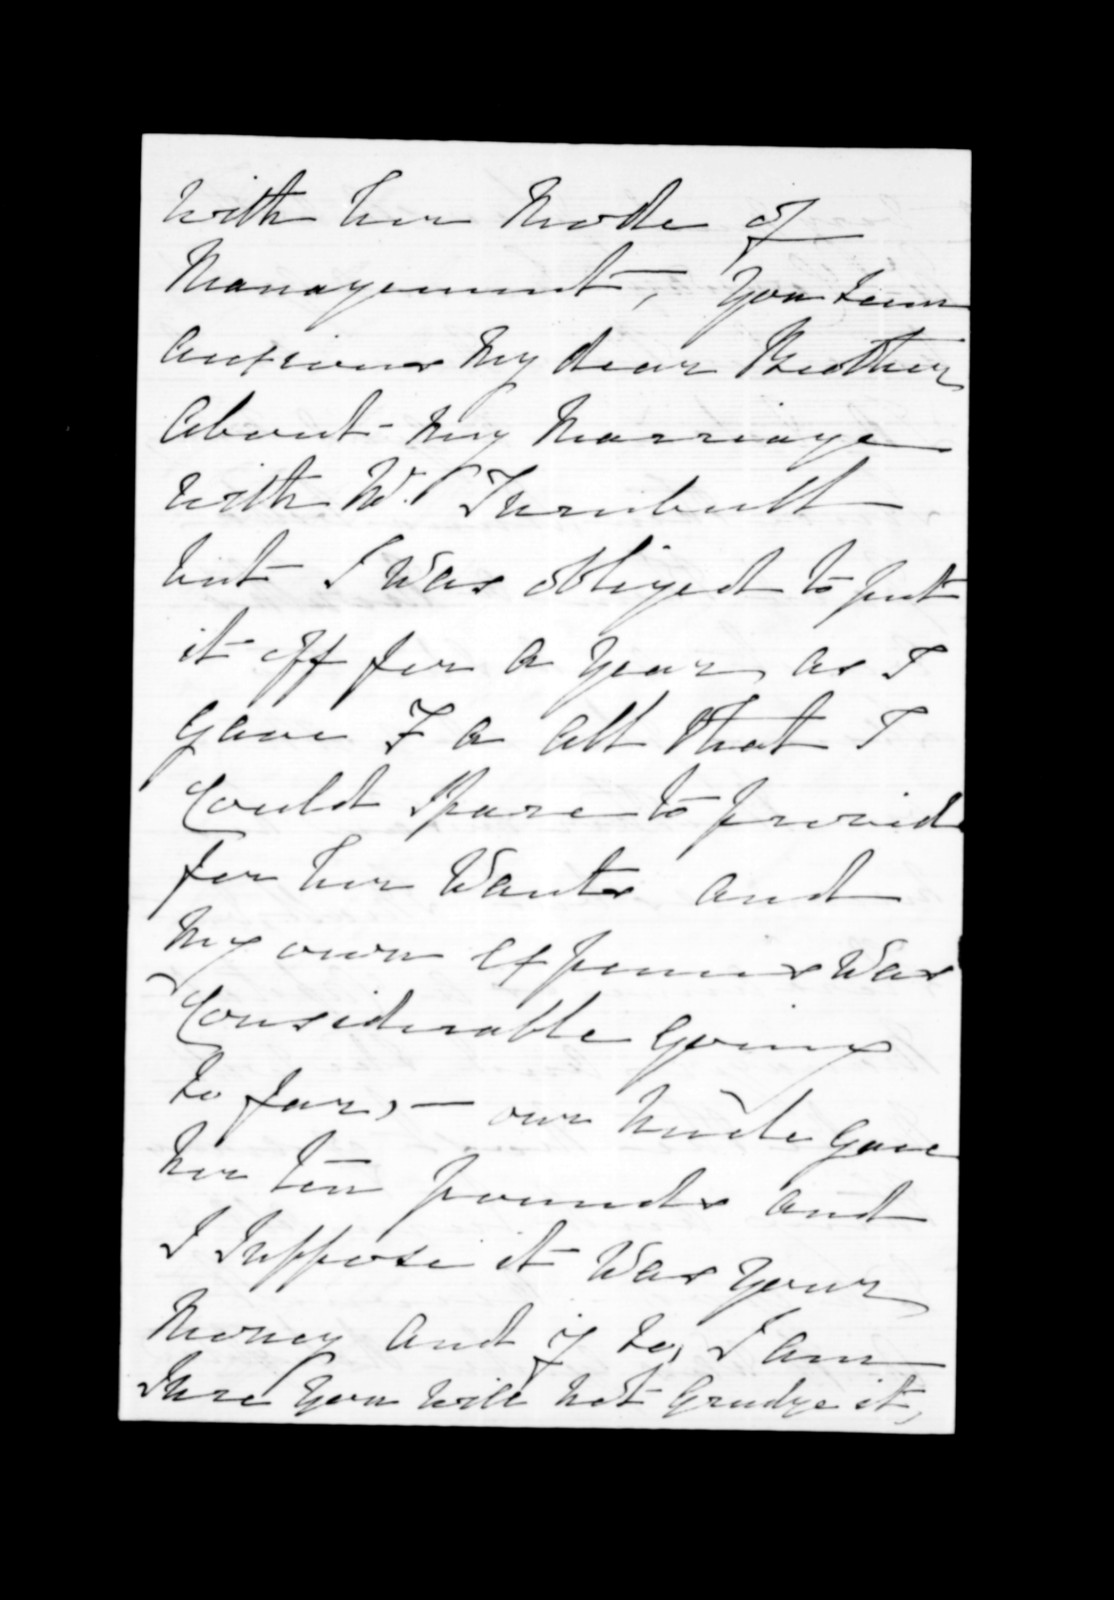 with her mode of
Management, You seem
anxious My dear Brother
About My Marriage
with Mr Turnbull
but I Was obliged to put
it off for a Year, as I
gave I a all that I
Could Spare to provide
for her Wants and
My own expenses Was
Considerable going
so far, — our Uncle gave
her ten pounds and
I Suppose it Was Your
Money and if so, I am
Sure You will not Grudge it,